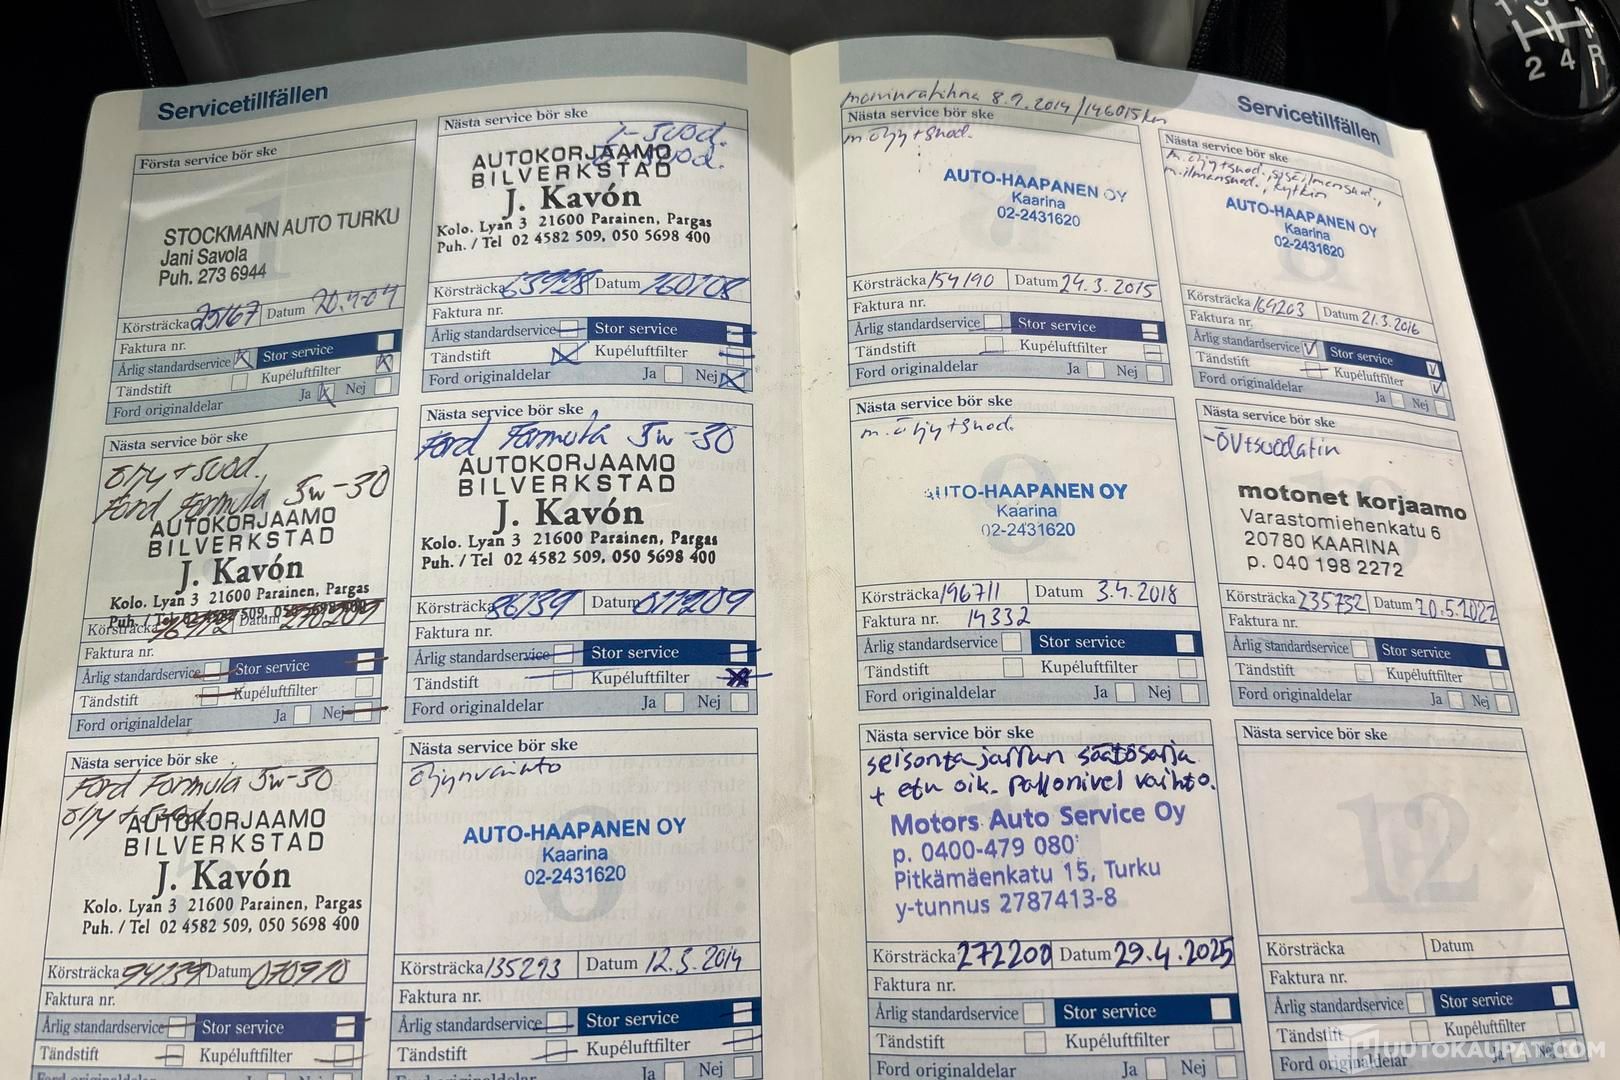 Servicetillfällen
Första service bör ske
STOCKMANN AUTO TURKU
Jani Savola
Puh. 273 6944
Körsträcka 25167 Datum 20.4-04
Faktura nr.
Årlig standardservice Stor service
Tändstift Kupéluftfilter
Ford originaldelar Ja Nej
Nästa service bör ske
AUTOKORJAAMO
BILVERKSTAD
J. Kavón
Kolo. Lyan 3 21600 Parainen, Pargas
Puh. / Tel 02 4582 509, 050 5698 400
Körsträcka 63998 Datum 160108
Faktura nr.
Årlig standardservice Stor service
Tändstift Kupéluftfilter
Ford originaldelar Ja Nej
Nästa service bör ske
öljy + suod.
Ford Formula 5w-30
AUTOKORJAAMO
BILVERKSTAD
J. Kavón
Kolo. Lyan 3 21600 Parainen, Pargas
Puh. / Tel 02 4582 509, 050 5698 400
Körsträcka Datum 270209
Faktura nr.
Årlig standardservice Stor service
Tändstift Kupéluftfilter
Ford originaldelar Ja Nej
Nästa service bör ske
Ford Formula 5w-30
AUTOKORJAAMO
BILVERKSTAD
J. Kavón
Kolo. Lyan 3 21600 Parainen, Pargas
Puh. / Tel 02 4582 509, 050 5698 400
Körsträcka 86139 Datum 011209
Faktura nr.
Årlig standardservice Stor service
Tändstift Kupéluftfilter
Ford originaldelar Ja Nej
Nästa service bör ske
Ford Formula 5w-30
öljy + suod.
AUTOKORJAAMO
BILVERKSTAD
J. Kavón
Kolo. Lyan 3 21600 Parainen, Pargas
Puh. / Tel 02 4582 509, 050 5698 400
Körsträcka 94139 Datum 070910
Faktura nr.
Årlig standardservice Stor service
Tändstift Kupéluftfilter
Nästa service bör ske
öljynvaihto
AUTO-HAAPANEN OY
Kaarina
02-2431620
Körsträcka 135293 Datum 12.3.2014
Faktura nr.
Årlig standardservice Stor service
Tändstift Kupéluftfilter
Ja Nej
Servicetillfällen
moninratihna 8.9.2014/146015km
Nästa service bör ske
m.öljy+suod.
AUTO-HAAPANEN OY
Kaarina
02-2431620
Körsträcka 154190 Datum 24.3.2015
Faktura nr.
Årlig standardservice Stor service
Tändstift Kupéluftfilter
Ford originaldelar Ja Nej
Nästa service bör ske
m.öljy+suod., sisäilmansuod.,
m.ilmansuod., kytkin
AUTO-HAAPANEN OY
Kaarina
02-2431620
Körsträcka 169203 Datum 21.3.2016
Faktura nr.
Årlig standardservice Stor service
Tändstift Kupéluftfilter
Ford originaldelar Ja Nej
Nästa service bör ske
m.öljy+suod.
AUTO-HAAPANEN OY
Kaarina
02-2431620
Körsträcka 196711 Datum 3.4.2018
Faktura nr. 14332
Årlig standardservice Stor service
Tändstift Kupéluftfilter
Ford originaldelar Ja Nej
Nästa service bör ske
-ÖV+suodatin
motonet korjaamo
Varastomiehenkatu 6
20780 KAARINA
p. 040 198 2272
Körsträcka 235732 Datum 20.5.2022
Faktura nr.
Årlig standardservice Stor service
Tändstift Kupéluftfilter
Ford originaldelar Ja Nej
Nästa service bör ske
seisonta jarrun säätösarja
+ etu oik. pallonivel vaihto.
Motors Auto Service Oy
p. 0400-479 080
Pitkämäenkatu 15, Turku
y-tunnus 2787413-8
Körsträcka 272200 Datum 29.4.2025
Faktura nr.
Årlig standardservice Stor service
Tändstift Kupéluftfilter
Ford originaldelar Ja Nej
Nästa service bör ske
12
Körsträcka Datum
Faktura nr.
Årlig standardservice Stor service
Tändstift Kupéluftfilter
Ford originaldelar Ja Nej
UUTOKAUPAT.COM
2 4 R